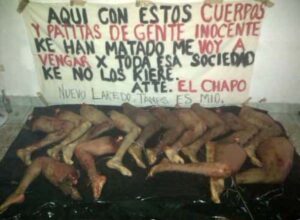 AQUI CON ESTOS CUERPOS
Y PATITAS DE GENTE INOCENTE
KE HAN MATADO ME VOY A
VENGAR X TODA ESA SOCIEDAD
KE NO LOS KIERE.
ATTE. EL CHAPO
NUEVO LAREDO. TAMPS ES MIO.